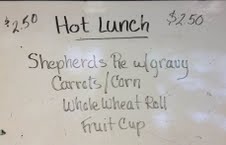 $2.50 Hot Lunch $2.50
Shepherds Pie w/gravy
Carrots/Corn
Whole Wheat Roll
Fruit Cup